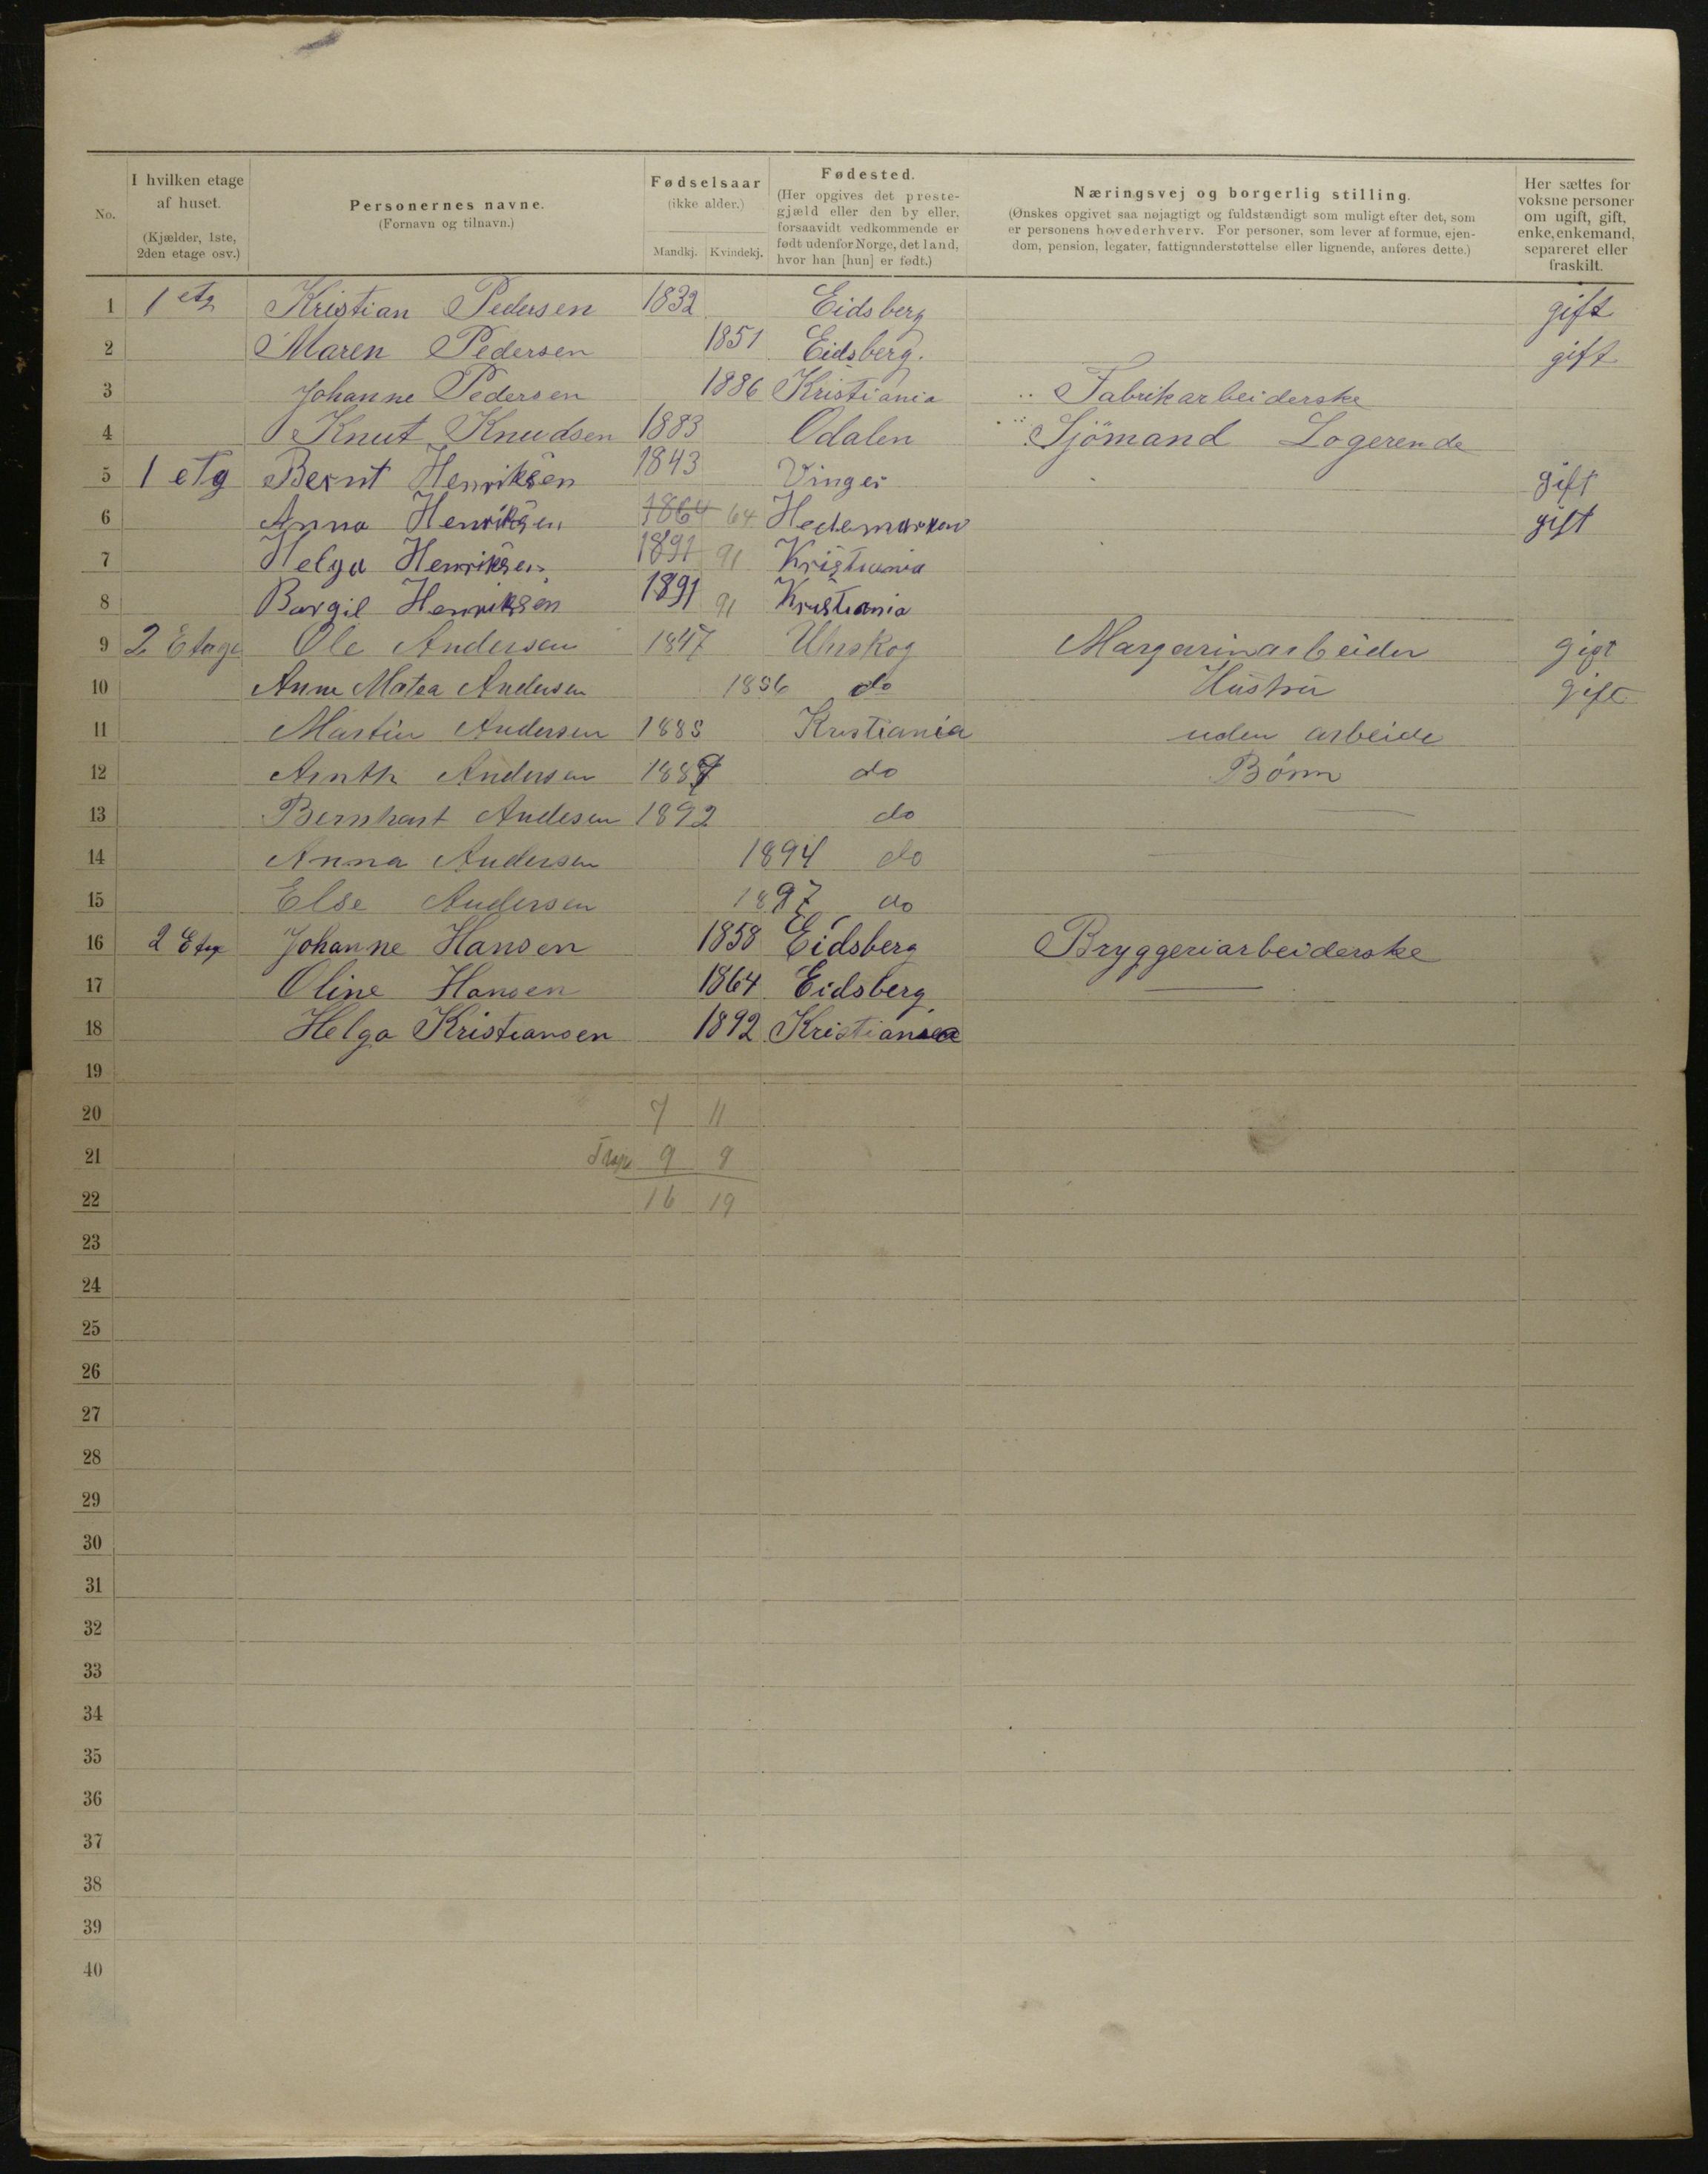 No. I hvilken etage af huset. (Kjælder, 1ste, 2den etage osv.) Personernes navne. (Fornavn og tilnavn.) Fødselsaar (ikke alder.) Mandkj. Kvindekj. Fødested. (Her opgives det prestegjæld eller den by eller, forsaavidt vedkommende er født udenfor Norge, det land, hvor han [hun] er født.) Næringsvej og borgerlig stilling. (Ønskes opgivet saa nøjagtigt og fuldstændigt som muligt efter det, som er personens hovederhverv. For personer, som lever af formue, ejendom, pension, legater, fattigunderstøttelse eller lignende, anføres dette.) Her sættes for voksne personer om ugift, gift, enke, enkemand, separeret eller fraskilt.
1 1 etg Kristian Pedersen 1832 Eidsberg gift
2 Maren Pedersen 1851 Eidsberg. gift
3 Johanne Pedersen 1886 Kristiania Fabrikarbeiderske
4 Knut Knudsen 1883 Odalen Sjömand Logerende
5 1 etg Bernt Henriksen 1843 Vinger gift
6 Anna Henriksen 1864 64 Hedemarken gift
7 Helga Henriksen 1891 91 Kristiania
8 Borgil Henriksen 1891 91 Kristiania
9 2 Etage Ole Andersen 1847 Uhrskog Margarinarbeider gift
10 Anne Matea Andersen 1856 do Hustru gift
11 Martin Andersen 1885 Kristiania uden arbeide
12 Andersen 1887 do Børn
13 Bernhart Andesen 1892 do
14 Anna Andersen 1894 do
15 Else Andersen 1897 do
16 2 Etg Johanne Hansen 1858 Eidsberg Bryggeriarbeiderske
17 Oline Hansen 1864 Eidsberg
18 Helga Kristiansen 1892 Kristiania
19
20 7 11
21 9 8
22 16 19
23
24
25
26
27
28
29
30
31
32
33
34
35
36
37
38
39
40